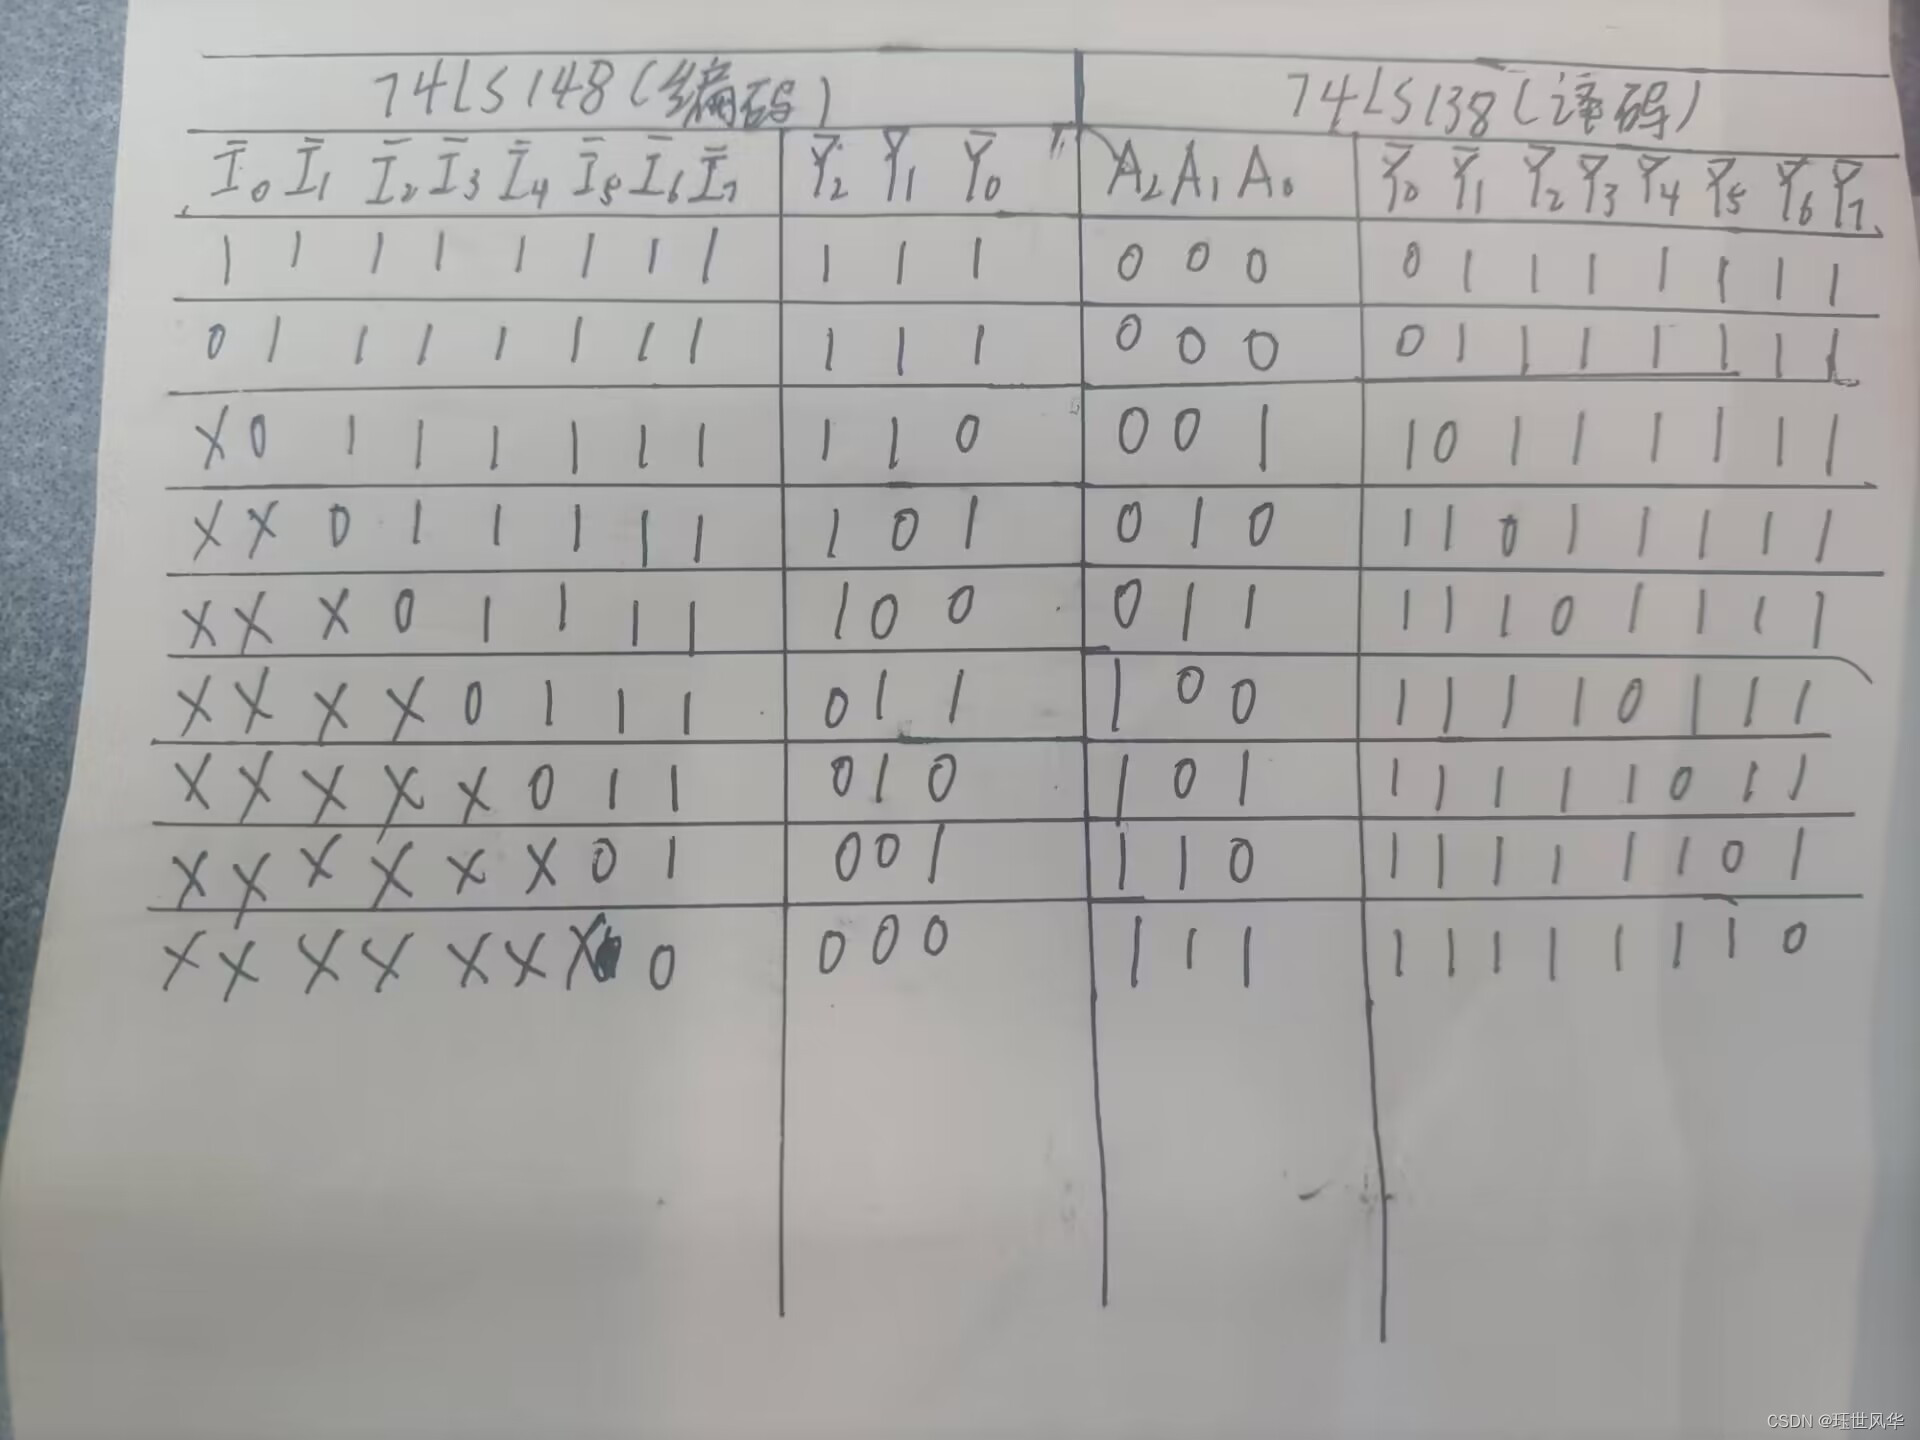 74LS148(编码) 74LS138(译码)
Ī₀ Ī₁ Ī₂ Ī₃ Ī₄ Ī₅ Ī₆ Ī₇ Ȳ₂ Ȳ₁ Ȳ₀ A₂ A₁ A₀ Ȳ₀ Ȳ₁ Ȳ₂ Ȳ₃ Ȳ₄ Ȳ₅ Ȳ₆ Ȳ₇
1 1 1 1 1 1 1 1 1 1 1 0 0 0 0 1 1 1 1 1 1 1
0 1 1 1 1 1 1 1 1 1 1 0 0 0 0 1 1 1 1 1 1 1
X 0 1 1 1 1 1 1 1 1 0 0 0 1 1 0 1 1 1 1 1 1
X X 0 1 1 1 1 1 1 0 1 0 1 0 1 1 0 1 1 1 1 1
X X X 0 1 1 1 1 1 0 0 0 1 1 1 1 1 0 1 1 1 1
X X X X 0 1 1 1 0 1 1 1 0 0 1 1 1 1 0 1 1 1
X X X X X 0 1 1 0 1 0 1 0 1 1 1 1 1 1 0 1 1
X X X X X X 0 1 0 0 1 1 1 0 1 1 1 1 1 1 0 1
X X X X X X X 0 0 0 0 1 1 1 1 1 1 1 1 1 1 0
CSDN @珏世风华